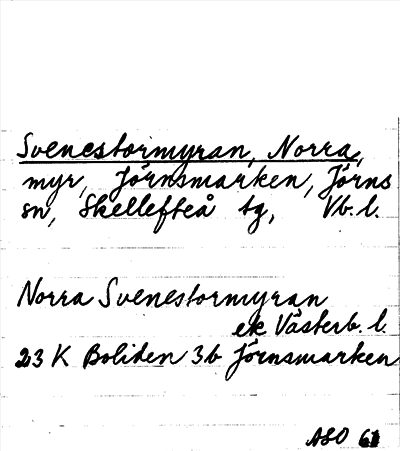 Svenestormyran, Norra,
myr, Jörnsmarken, Jörns
sn, Skellefteå tg, Vb. l.
Norra Svenestormyran
ek Västerb. l.
23 K Boliden 3b Jörnsmarken
ASO 61